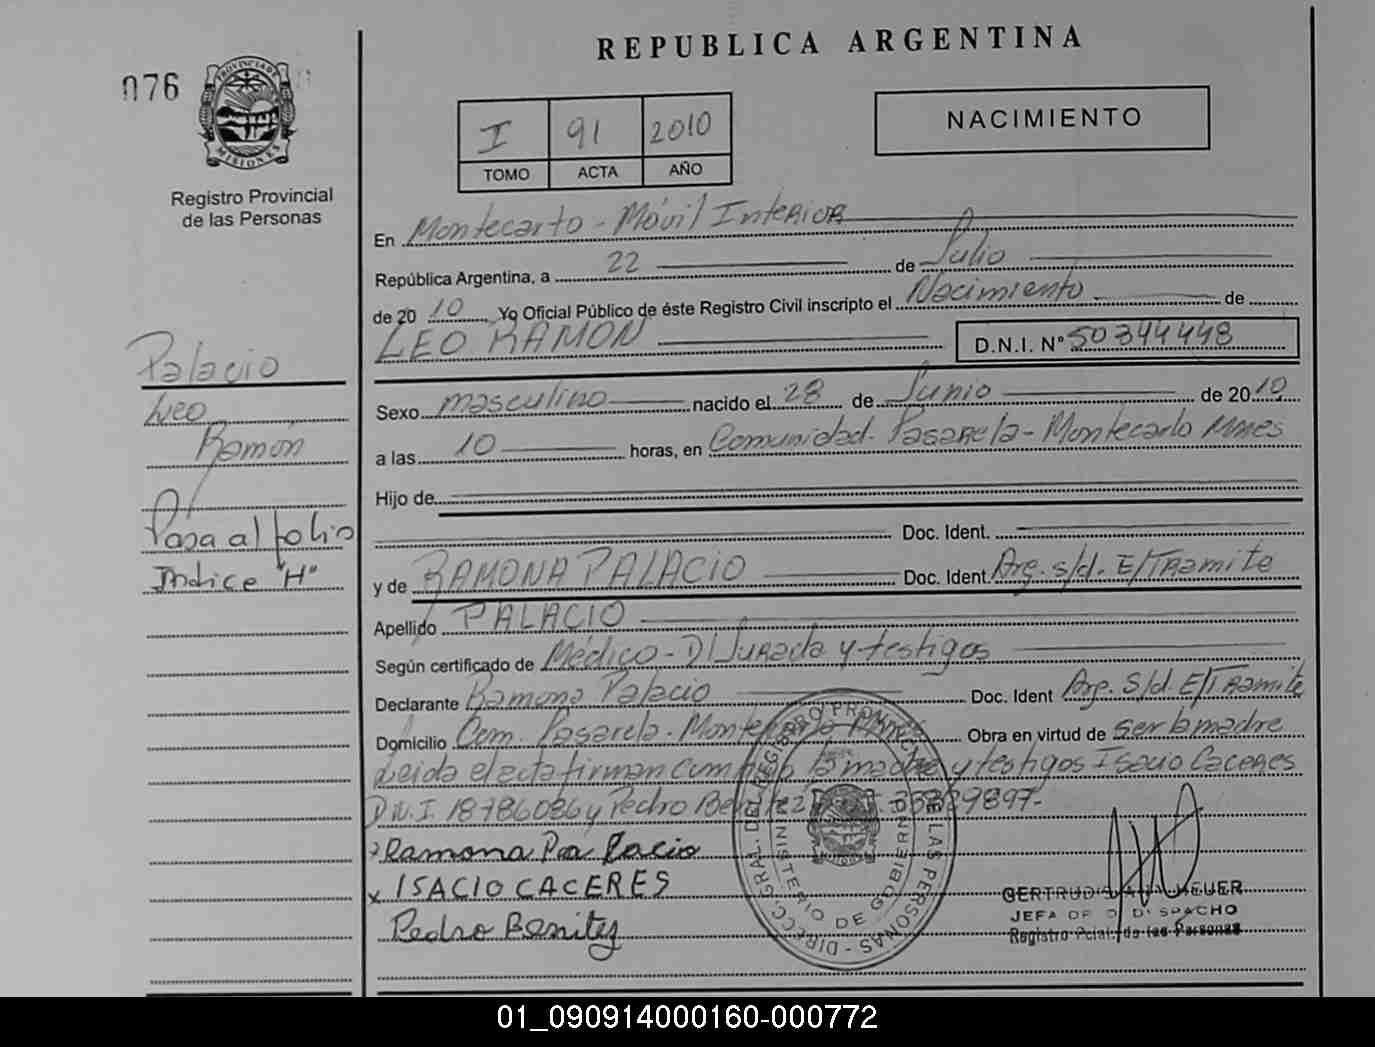 REPUBLICA ARGENTINA
076
PROVINCIA DE
MISIONES
Registro Provincial
de las Personas
I 91 2010
TOMO ACTA AÑO
NACIMIENTO
En Montecarlo - Móvil Interior
República Argentina, a 22 de Julio
de 2010 Yo Oficial Público de éste Registro Civil inscripto el Nacimiento de
LEO RAMON D.N.I. Nº 50344448
Sexo masculino nacido el 28 de Junio de 2010
a las 10 horas, en Comunidad Pasarela - Montecarlo Mnes
Hijo de
Doc. Ident.
y de RAMONA PALACIO Doc. Ident Arg. s/d. E/Tramite
Apellido PALACIO
Según certificado de Médico - D/Jurada y testigos
Declarante Ramona Palacio Doc. Ident Arg. S/d. E/Tramite
Domicilio Com. Pasarela - Montecarlo Obra en virtud de ser la madre
Leida el acta firman la madre y testigos Isacio Caceres
D.N.I. 18786086 y Pedro Benitez
Ramona Pa lacio
x ISACIO CACERES
Pedro Benitez
Palacio
Leo
Ramón
Pasa al folio
Indice "H"
DIRECC. GRAL. DEL REGISTRO PROVINCIAL DE LAS PERSONAS
MINISTERIO DE GOBIERNO
GERTRUDIS HEUER
JEFA DE DESPACHO
Registro Pcial. de las Personas
01_090914000160-000772